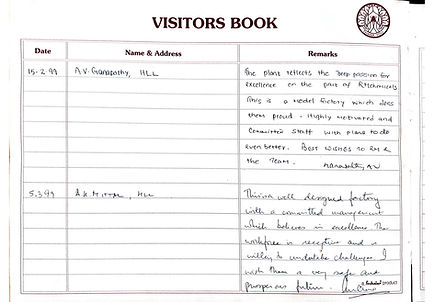 VISITORS BOOK
Date Name & Address Remarks
15-2-99 A.V. Ganapathy, HLL The plant reflects the deep passion for
excellence on the part of RMchemicals
This is a model factory which does
them proud - Highly motivated and
Committed Staff with plans to do
even better. Best wishes to RM &
the Team.
5.3.99 HLL This is a well designed factory
with a committed management
which believes in excellence. The
workforce is receptive and is
willing to undertake challenges. I
wish them a very safe and
prosperous future.
product